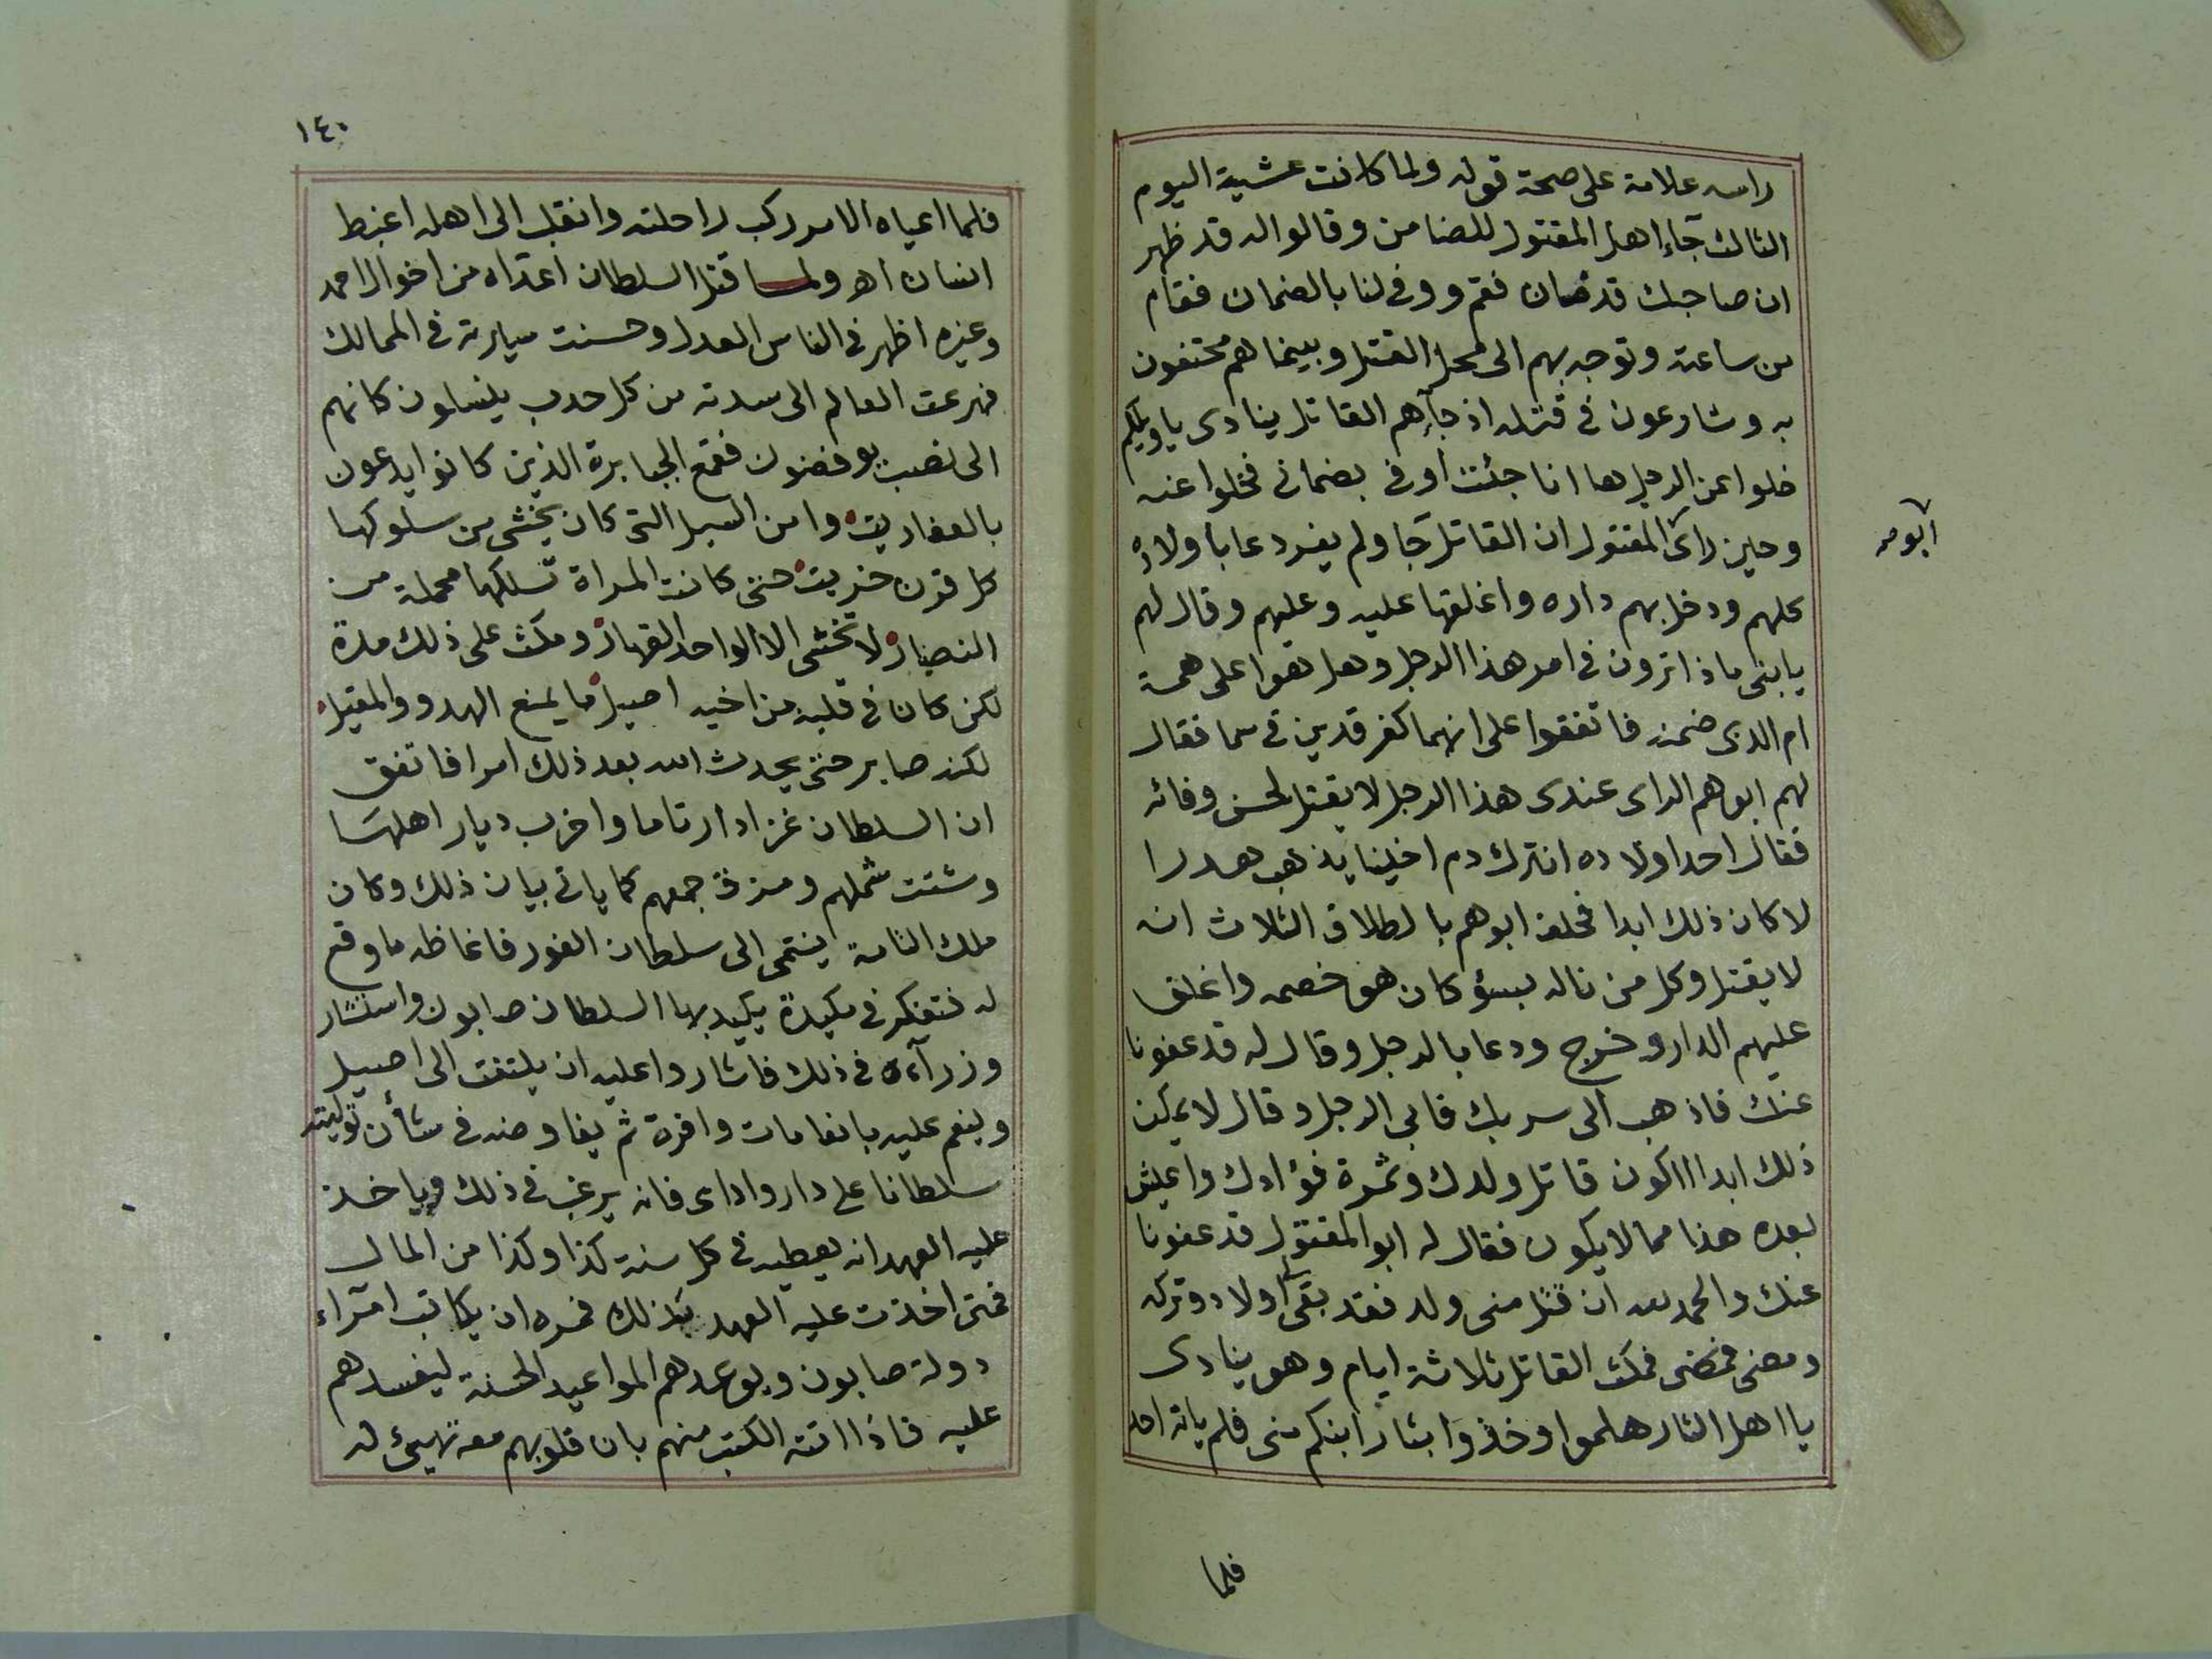 راسه علامة على صحة قوله ولما كانت عشية اليوم
الثالث جآء اهل المقتول للضامن وقالوا له قد ظهر
ان صاحبك قد خان فقم ووفى لنا بالضمان فقام
من ساعته وتوجه بهم الى محل القتل وبينما هم محتفون
به وشارعون فى قتله اذ جآهم القاتل ينادى يا ويلكم
خلوا عن الرجل ها انا جئت اوفى بضمانى فخلوا عنه
ابو
وحين راى المقتول ان القاتل جآ ولم يفر دعا باولاده
كلهم ودخل بهم داره واغلقها عليه وعليهم وقال لهم
يا بنى ماذا ترون فى امر هذا الرجل وهل هو اعلى همة
ام الذى ضمنه فاتفقوا على انهما كفرقدين فى سما فقال
لهم ابوهم الراى عندى هذا الرجل لا يقتل لحسن وفائه
فقال احد اولاده انترك دم اخينا يذهب هدرا
لا كان ذلك ابدا فحلف ابوهم بالطلاق الثلاث انه
لا يقتل وكل من ناله بسؤ كان هو خصمه واغلق
عليهم الدار وخرج ودعا بالرجل وقال له قد عفونا
عنك فاذهب الى سربك فابى الرجل وقال لا يمكن
ذلك ابدا ااكون قاتل ولدك وثمرة فؤادك واعيش
بعده هذا مما لا يكون فقال له ابو المقتول قد عفونا
عنك والحمد لله ان قتل منى ولد فقد بقى لى اولاد وتركه
ومضى فمضى فمكث القاتل ثلاثة ايام وهو ينادى
يا اهل الثار هلموا وخذوا بثار ابنكم منى فلم ياته احد
فلما
١٤٠
فلما اعياه الامر ركب راحلته وانقلب الى اهله اغبط
انسان اهـ ولما قتل السلطان اعداه من اخوال احمد
وغيره اظهر فى الناس العدل وحسنت سيرته فى الممالك
فهرعت العالم الى سدته من كل حدب ينسلون كانهم
الى نصب يوفضون فقمع الجبابرة الذين كانوا يدعون
بالعفاريت وامن السبل التى كان يخشى من سلوكها
كل قرن خريت حتى كانت المراة تسلكها محملة من
النضار ولا تخشى الا الواحد القهار ومكث على ذلك مدة
لكن كان فى قلبه من اخيه اصيل ما يمنع الهدو والمقيل
لكنه صابر حتى يحدث الله بعد ذلك امرا فاتفق
ان السلطان غزا دار تاما واخرب ديار اهلها
وشتت شملهم ومزق جمعهم كما ياتى بيان ذلك وكان
ملك التامة ينتمى الى سلطان الفور فاغاظه ما وقع
له فتفكر فى مكيدة يكيد بها السلطان صابون واستشار
وزرآءه فى ذلك فاشاروا عليه ان يلتفت الى اصيل
وينعم عليه بانعامات وافرة ثم يفاوضه فى شأن توليته
سلطانا على دار واداى فانه يرغب فى ذلك وياخذ
عليه العهد انه يعطيه فى كل سنة كذا وكذا من المال
فمتى اخذت عليه العهد بذلك فمره ان يكاتب امرآء
دولة صابون ويوعدهم المواعيد الحسنة ليفسدهم
عليه فاذا اتته الكتب منهم بان قلوبهم معه تهيئ له